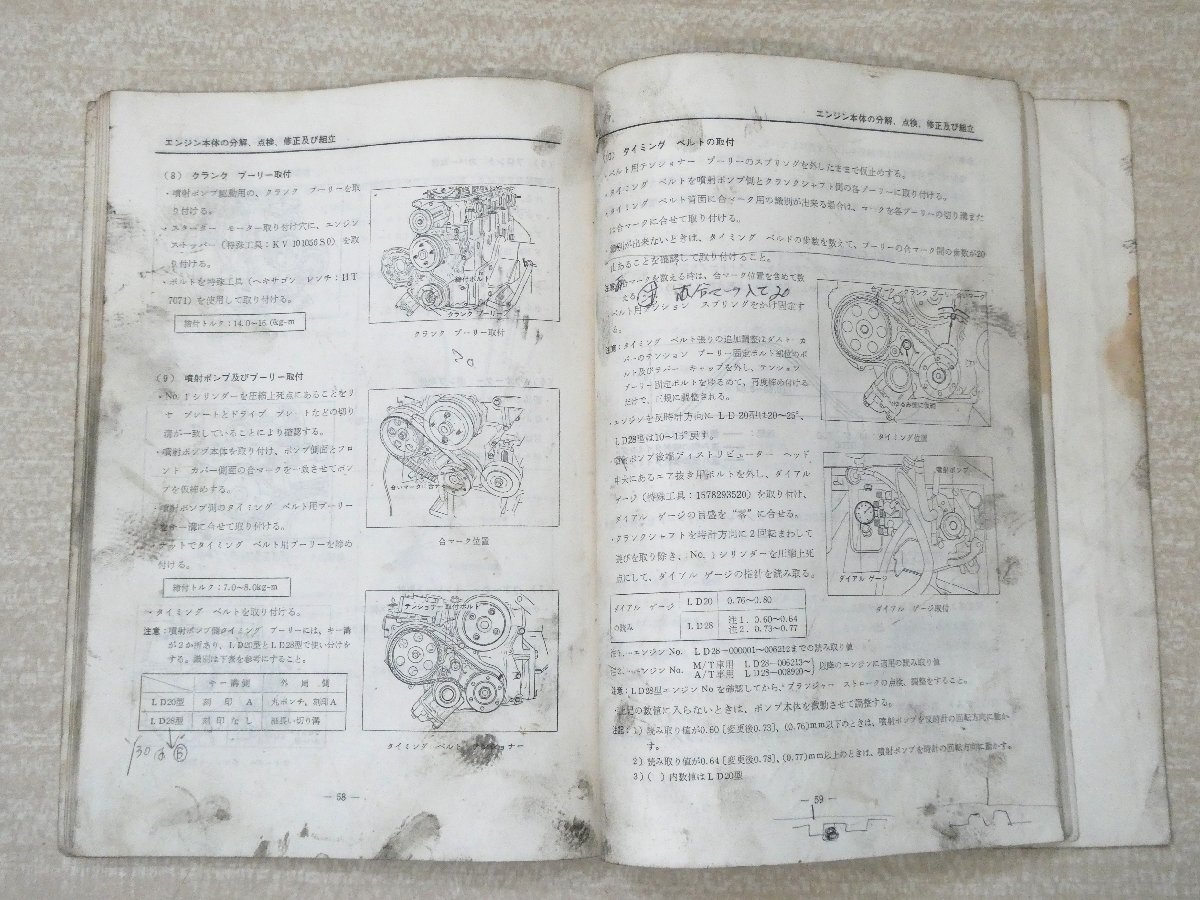 エンジン本体の分解、点検、修正及び組立
(8) クランク プーリー取付
・噴射ポンプ駆動用の、クランク プーリーを取
り付ける。
・スターター モーター取り付け穴に、エンジン
ストッパー (特殊工具:KV101056S0) を取
り付ける。
・ボルトを特殊工具 (ヘキサゴン レンチ:HT
7071) を使用して取り付ける。
締付トルク:14.0~16.0kg-m
締付ボルト
クランク プーリー
クランク プーリー取付
20
(9) 噴射ポンプ及びプーリー取付
・No. 1シリンダーを圧縮上死点にあることをリ
ヤ プレートとドライブ プレートなどの切り
溝が一致していることにより確認する。
・噴射ポンプ本体を取り付け、ポンプ側面とフロ
ント カバー側面の合マークを一致させてポン
プを仮締めする。
・噴射ポンプ側のタイミング ベルト用プーリー
をキー溝に合せて取り付ける。
・ナットでタイミング ベルト用プーリーを締め
付ける。
締付トルク:7.0~8.0kg-m
合いマーク
合マーク位置
・タイミング ベルトを取り付ける。
注意:噴射ポンプ側タイミング プーリーには、キー溝
が2か所あり、LD20型とLD28型で使い分けを
する。識別は下表を参考にすること。
キー溝側 外周側
LD20型 刻印A 丸ポンチ、刻印A
LD28型 刻印なし 細長い切り溝
テンショナー取付ボルト
タイミング ベルト テンショナー
Y30
― 58 ―
エンジン本体の分解、点検、修正及び組立
(10) タイミング ベルトの取付
・ベルト用テンショナー プーリーのスプリングを外したままで仮止めする。
・タイミング ベルトを噴射ポンプ側とクランクシャフト側の各プーリーに取り付ける。
・タイミング ベルト背面に合マーク用の識別が出来る場合は、マークを各プーリーの切り溝また
は合マークに合せて取り付ける。
識別が出来ないときは、タイミング ベルトの歯数を数えて、プーリーの合マーク間の歯数が20
山あることを確認して取り付けること。
マークを数える時は、合マーク位置を含めて数
える
合マーク入て20
ベルト用テンション スプリングをかけ固定す
る。
注意:タイミング ベルト張りの追加調整はダスト カ
バーのテンション プーリー固定ボルト部位のボ
ルト及びラバー キャップを外し、テンション
プーリー固定ボルトをゆるめて、再度締め付ける
だけで、正規に調整される。
・エンジンを反時計方向にLD20型は20~25°、
LD28型は10~15°戻す。
噴射ポンプ後端ディストリビューター ヘッド
中央にあるエア抜き用ボルトを外し、ダイアル
ゲージ (特殊工具:1578293520) を取り付け、
ダイアル ゲージの目盛を“零”に合せる。
・クランクシャフトを時計方向に2回転まわして
遊びを取り除き、No. 1シリンダーを圧縮上死
点にして、ダイアル ゲージの指針を読み取る。
クランク プーリー
合いマーク
ゆるみ側に仮締
タイミング位置
噴射ポンプ
ダイアル ゲージ
ダイアル ゲージ取付
ダイアル ゲージ LD20 0.76~0.80
の読み LD28 注1. 0.60~0.64
注2. 0.73~0.77
注1. …エンジンNo. LD28-000001~006212までの読み取り値
注2. …エンジンNo. M/T車用 LD28-006213~
A/T車用 LD28-008920~
以降のエンジンに適用の読み取り値
注意:LD28型エンジンNoを確認してから、プランジャー ストロークの点検、調整をすること。
上記の数値に入らないときは、ポンプ本体を微動させて調整する。
注記:1) 読み取り値が0.60 [変更後0.73]、(0.76)mm以下のときは、噴射ポンプを反時計の回転方向に動か
す。
2) 読み取り値が0.64 [変更後0.78]、(0.77)mm以上のときは、噴射ポンプを時計の回転方向に動かす。
3) ( ) 内数値はLD20型
― 59 ―